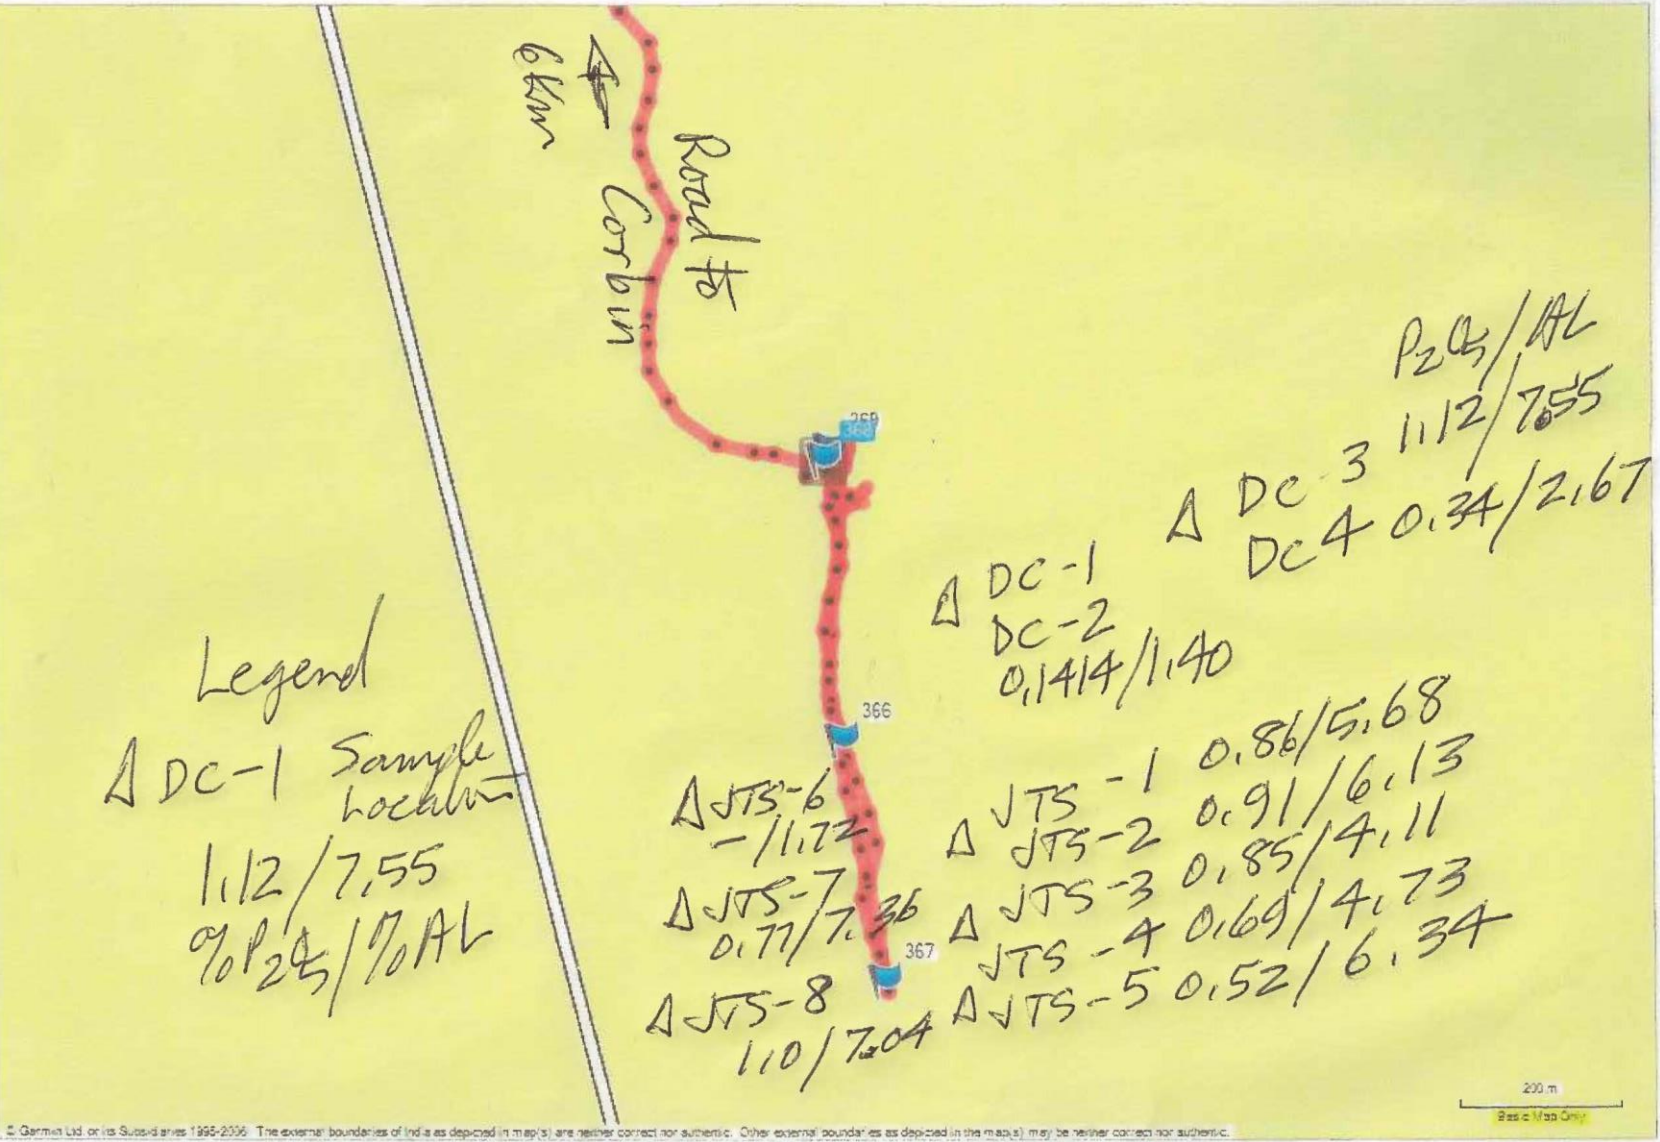 6Km
Road to
Corbin
369
368
P2O5/AL
DC-3 1.12/7.55
DC 4 0.34/2.67
DC-1
DC-2
0.1414/1.40
Legend
DC-1 Sample
Location
1.12/7.55
%P2O5/%AL
366
JTS-6
-/1.72
JTS-7
0.77/7.36
JTS-8
1.0/7.04
367
JTS-1 0.86/5.68
JTS-2 0.91/6.13
JTS-3 0.85/4.11
JTS-4 0.69/4.73
JTS-5 0.52/6.34
200 m
Basic Map Only
© Garmin Ltd. or its Subsidiaries 1995-2006 The external boundaries of India as depicted in map(s) are neither correct nor authentic. Other external boundaries as depicted in the map(s) may be neither correct nor authentic.